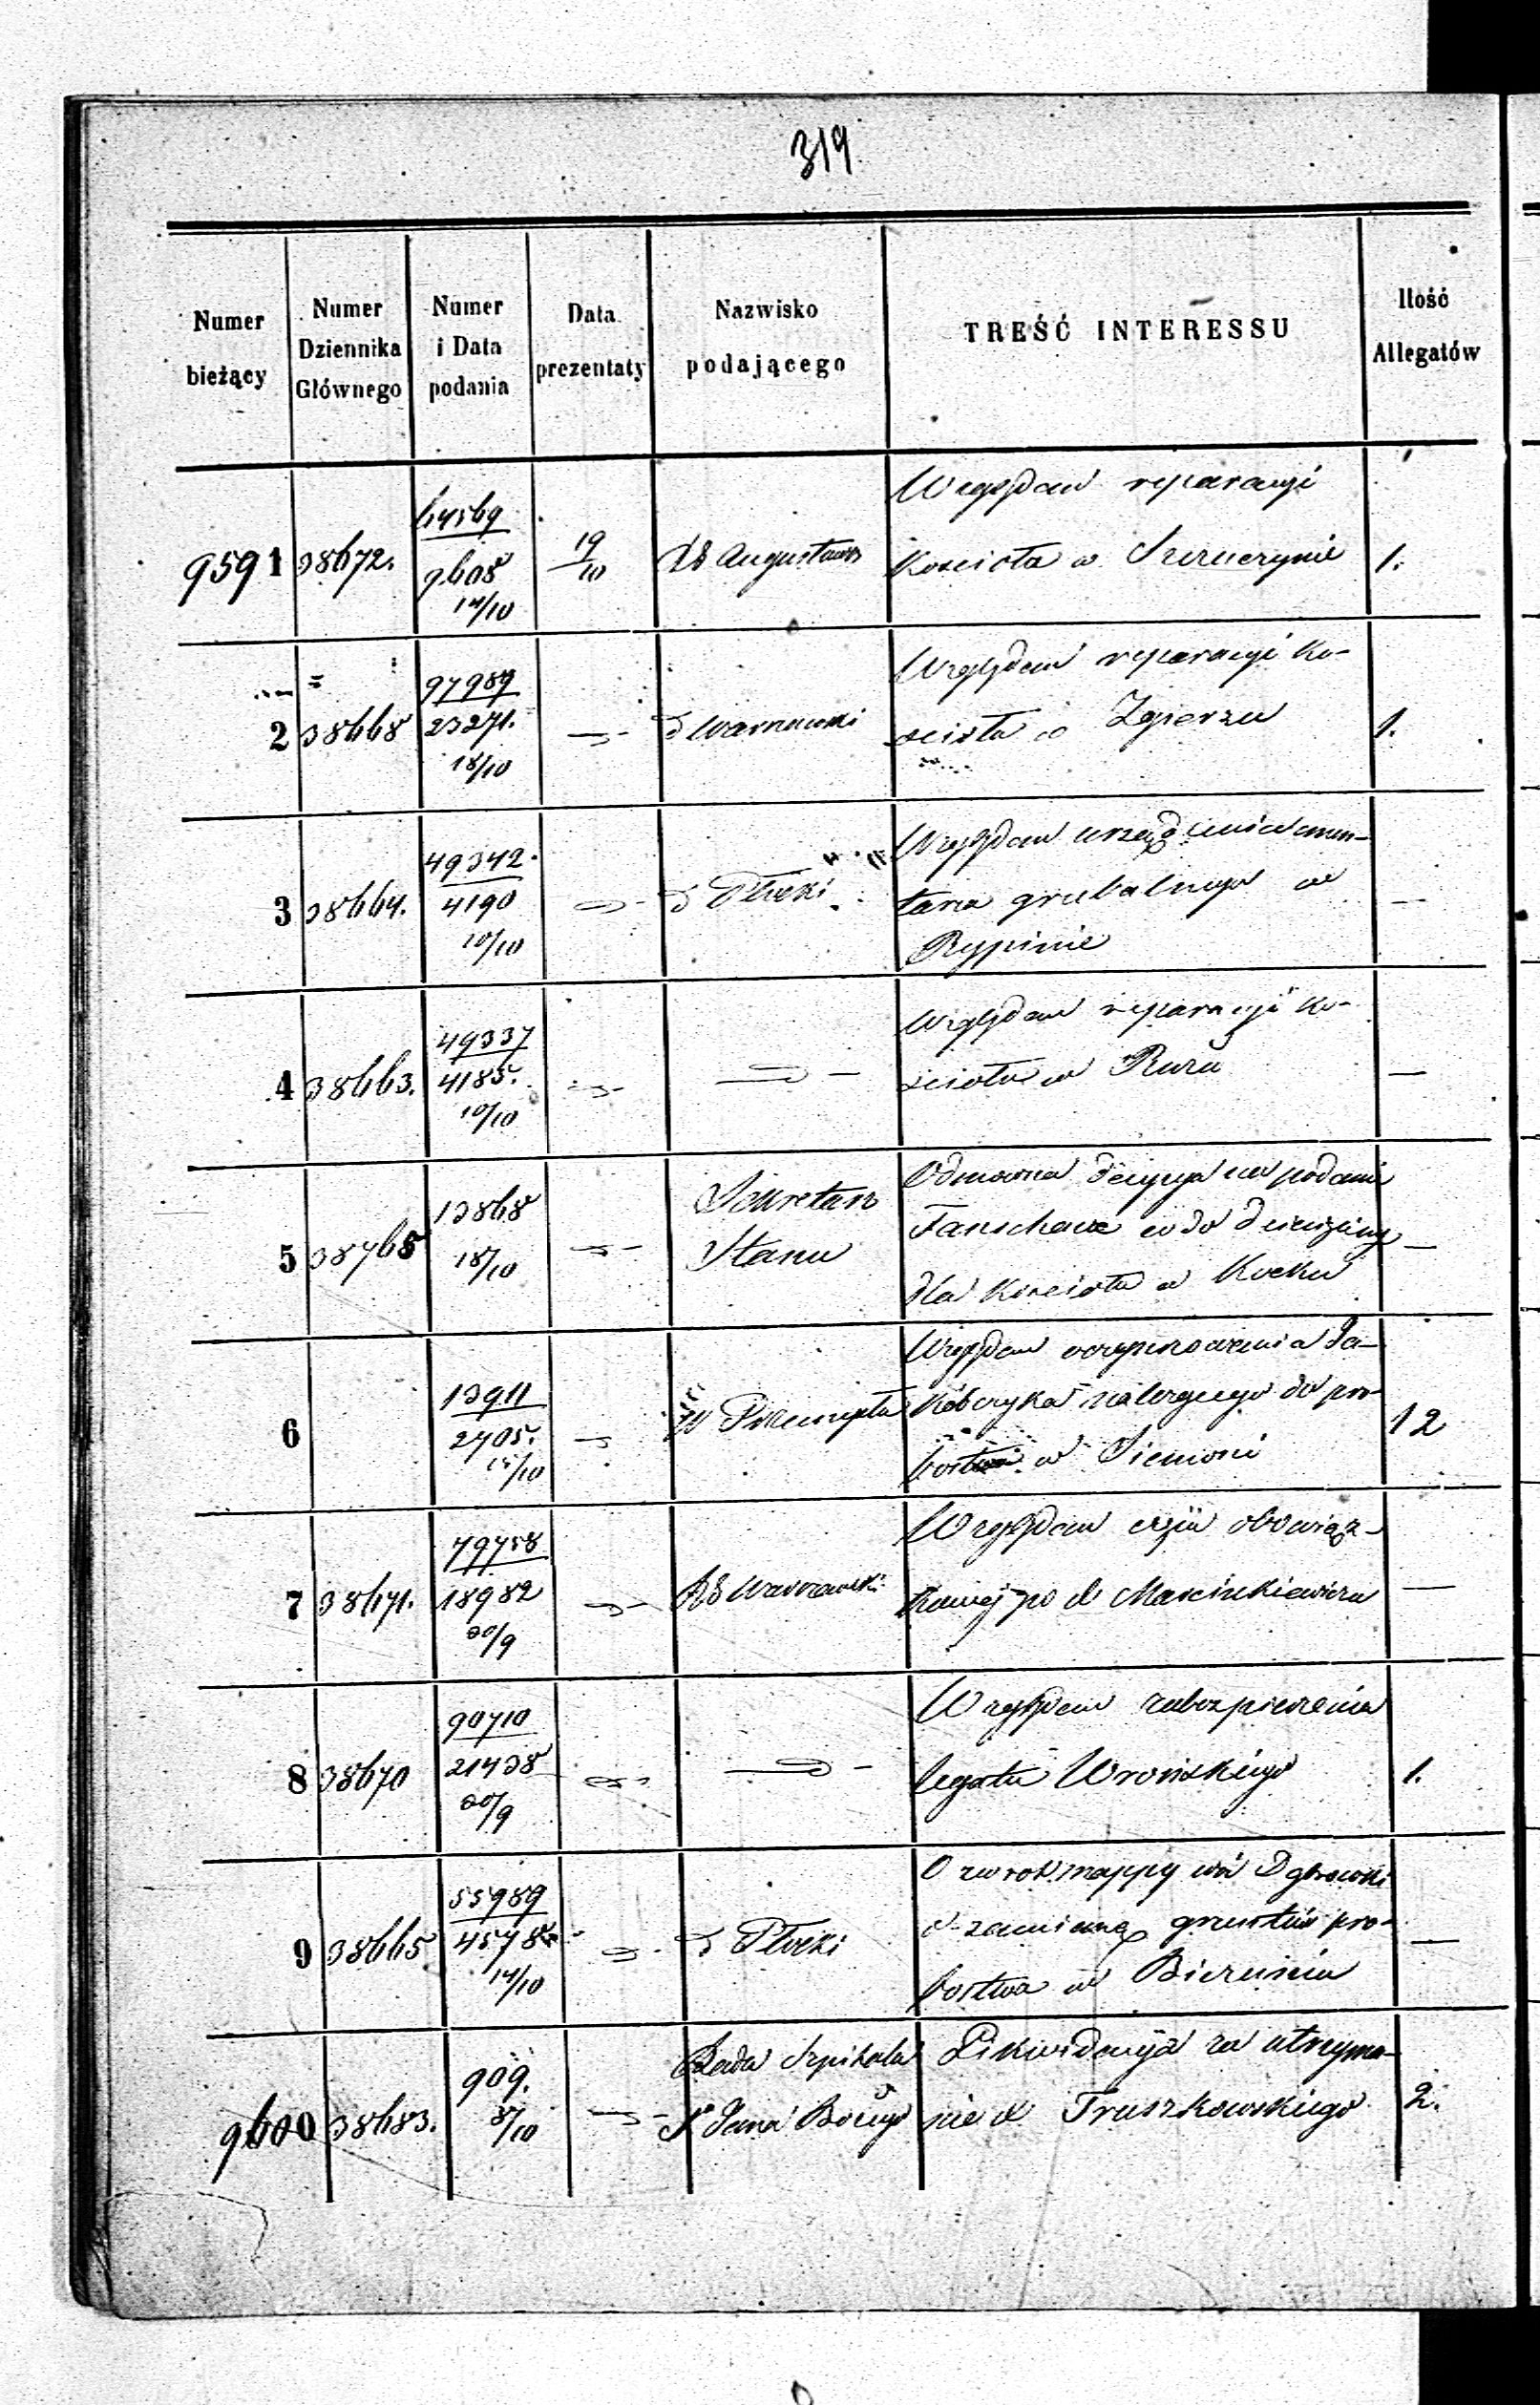 319
Numer bieżący
Numer Dziennika Głównego
Numer i Data podania
Data prezentaty
Nazwisko podającego
TREŚĆ INTERESSU
Ilość Allegatów
9591 38672. 64569 9608 14/10 19/10 Augustows
Względem reparacyi
Kościoła w Szczuczynie 1.
2 38668 97989 23271. 18/10 d Warszawski
Względem reparacyi Ko-
ścioła w Zgierzu 1.
3 38664. 49342. 4190 10/10 d Płocki
Względem urządzenia cmen-
tarza grzebalnego w
Rypinie
4 38663. 49337 4185. 10/10
Względem reparacyi Ko-
ścioła w
5 38768 13868 18/10 Sekretarz Stanu
Odmowna decyzya na podanie
co do dziesięciny
dla Kościoła w Kocku
6 13911 2705. 15/10
Względem oczynszowania Ja-
kóbczyka należącego do pro-
bostwa w Siemoni 12
7 38671. 79758 18982 30/9 RG Warszawski
Względem obowiąz-
kowej po X Marcinkiewiczu
8 38670 90710 21438 20/9
Względem zabezpieczenia
legatu Wrońskiego 1.
9 38665 55989 4578 14/10 d Płocki
O zwrot mappy wsi Dąbrowki
i zamianę gruntów pro-
bostwa w Bieżuniu
9600 38683. 909. 8/10 Rada Szpitala
Sgo Jana Bożego
Likwidacyja za utrzyma-
nie X Truszkowskiego 2.